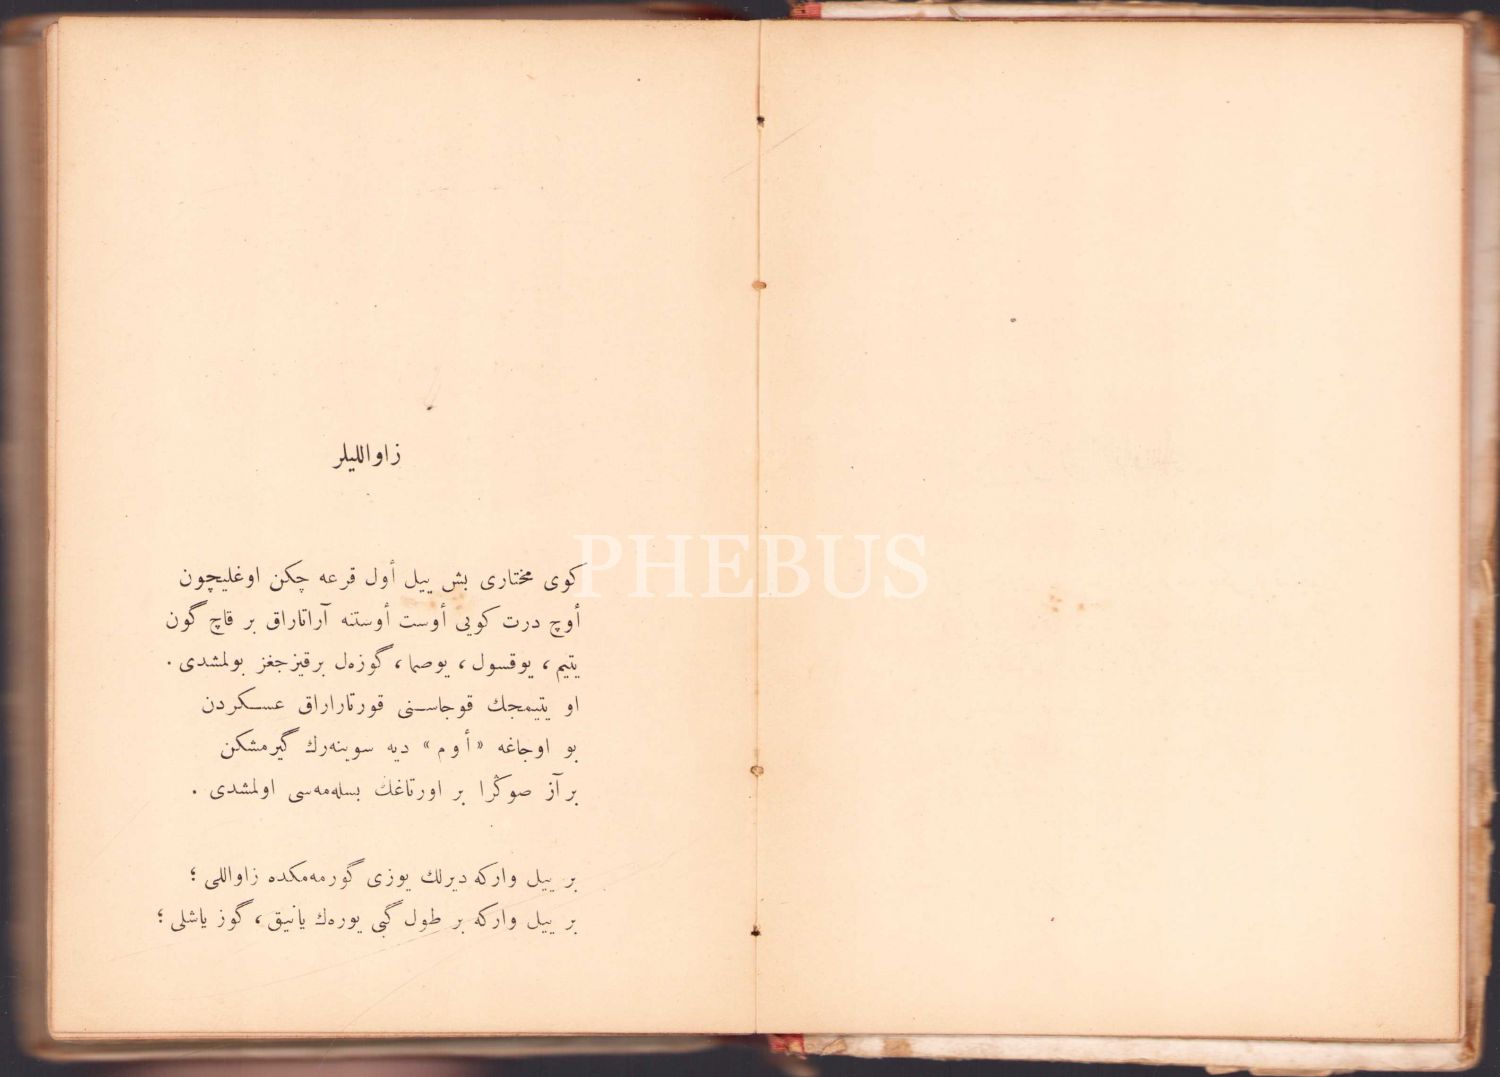 زاواللیلر
كوی مختاری بش ییل أول قرعه چكن اوغلیچون
أوچ درت كویی أوست أوستنه آراتاراق بر قاچ گون
یتیم ، یوقسول ، یوصما ، گوزه‌ل برقیزجغز بولمشدی .
او یتیمجك قوجاسنی قورتاراراق عسكردن
بو اوجاغه «أوم» دیه سوینه‌رك گیرمشكن
برآز صوڭرا بر اورتاغك بسله‌مه‌سی اولمشدی .
بر ییل واركه دیرلك یوزی گورمه‌مكده زاواللی ؛
بر ییل واركه بر طول گبی یوره‌ك یانیق ، گوز یاشلی ؛
PHEBUS